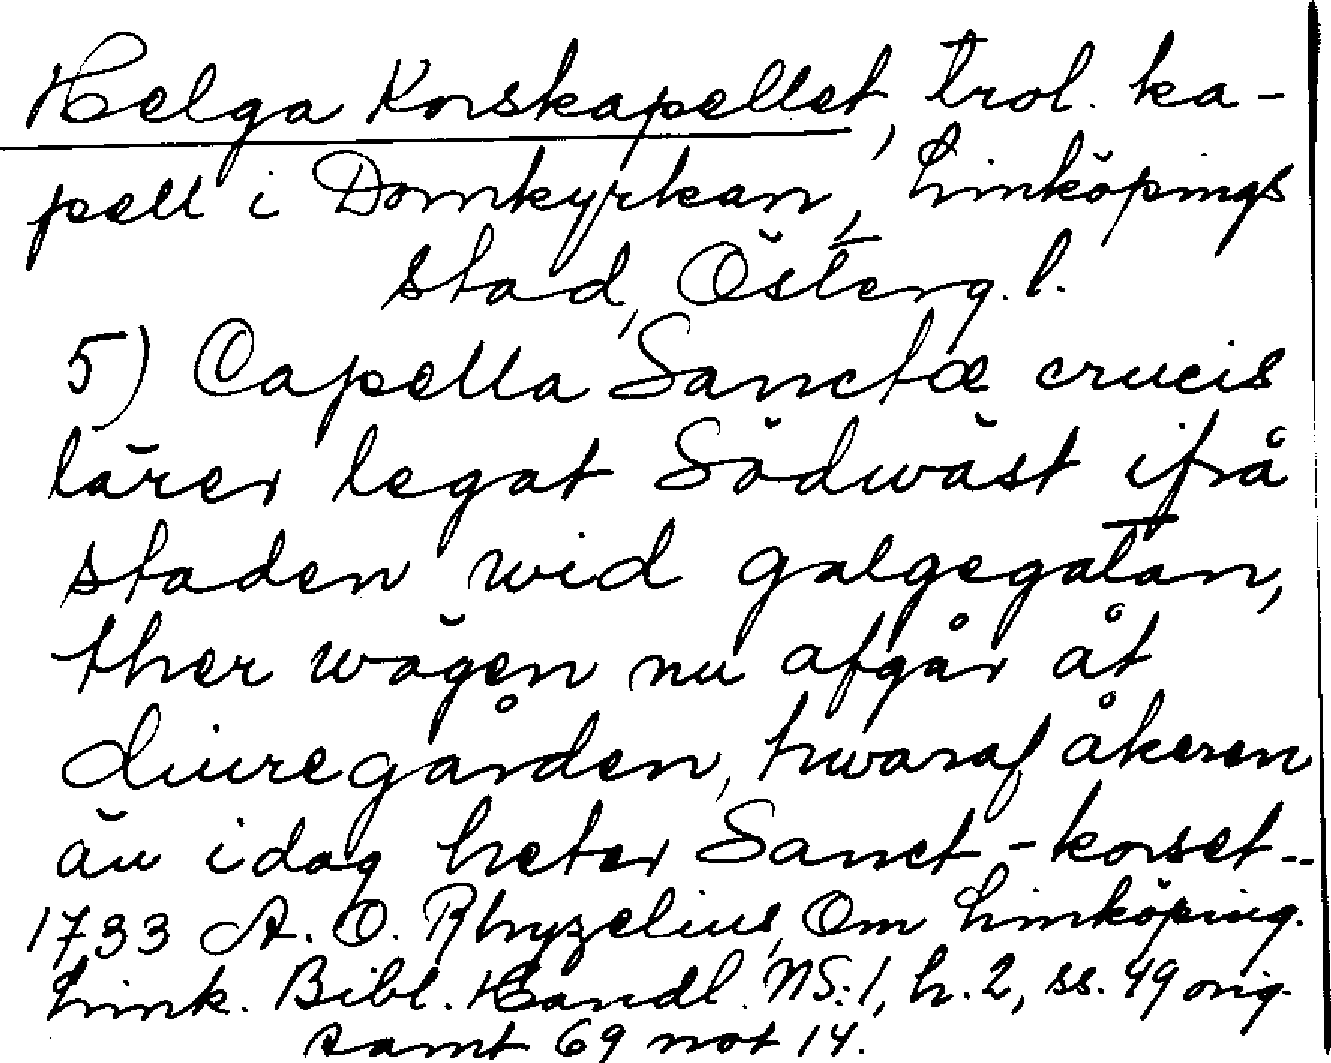 Helga Korskapellet, trol. ka-
pell i Domkyrkan, Linköpings
stad, Österg. l.
5) Capella Sanctæ crucis
lärer legat Södwäst ifrå
staden wid galgegatan,
ther wägen nu afgår åt
diuregården, hwaraf åkeren
än idag heter Sanct-korset..
1733 A. O. Rhyzelius, Om Linköping.
Link. Bibl. Handl. NS: 1, h. 2, ss. 49 orig.
samt 69 not 14.